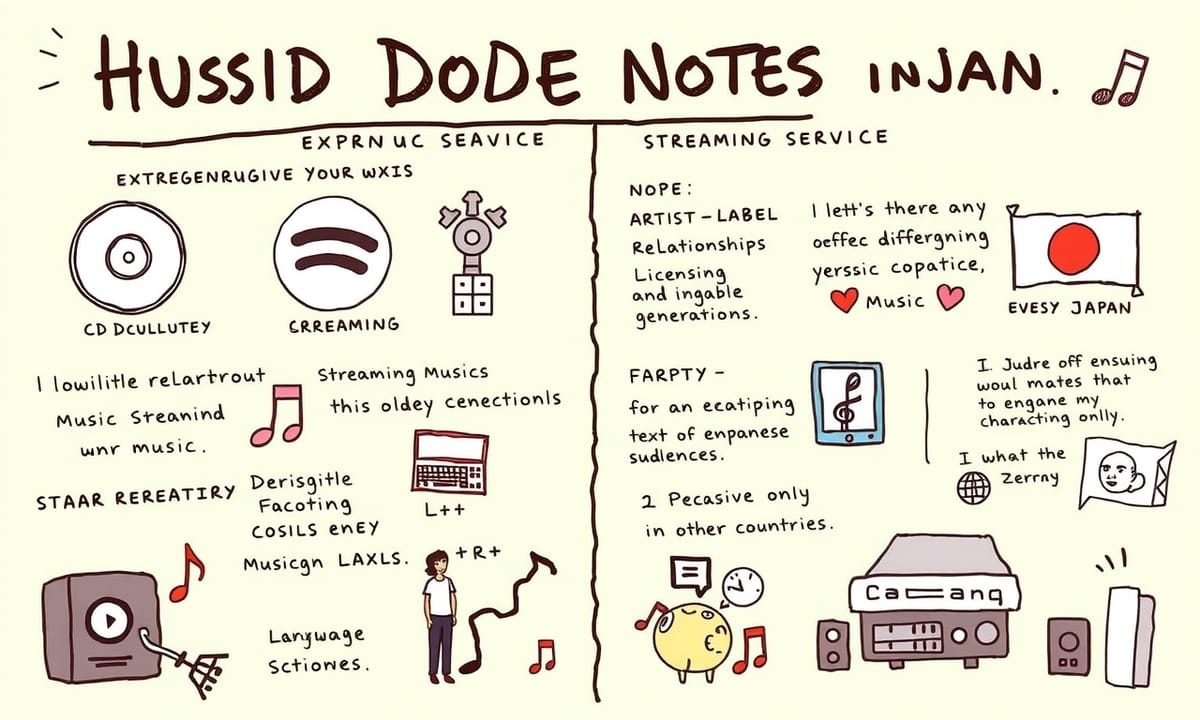 HUSSID DODE NOTES INJAN.
EXPRN UC SEAVICE
EXTREGENRUGIVE YOUR WXIS
CD DCULLUTEY
GRREAMING
I lowilitle relartrout
Music Steanind
wnr music.
Streaming Musics
this oldey cenectionls
STAAR REREATIRY
Derisgitle
Facoting
COSILS ENEY
Musicgn LAXLS.
L++
+R+
Language
Sctiowes.
STREAMING SERVICE
NOPE:
ARTIST-LABEL
Relationships
Licensing
and ingable
generations.
I lett's there any
oeffec differgning
yerssic copatice,
Music
EVESY JAPAN
FARPTY -
for an ecatiping
text of enpanese
sudlences.
I. Judre off ensuing
woul mates that
to engane my
characting onlly.
I what the
Zerrny
2 Pecasive only
in other countries.
Ca anq